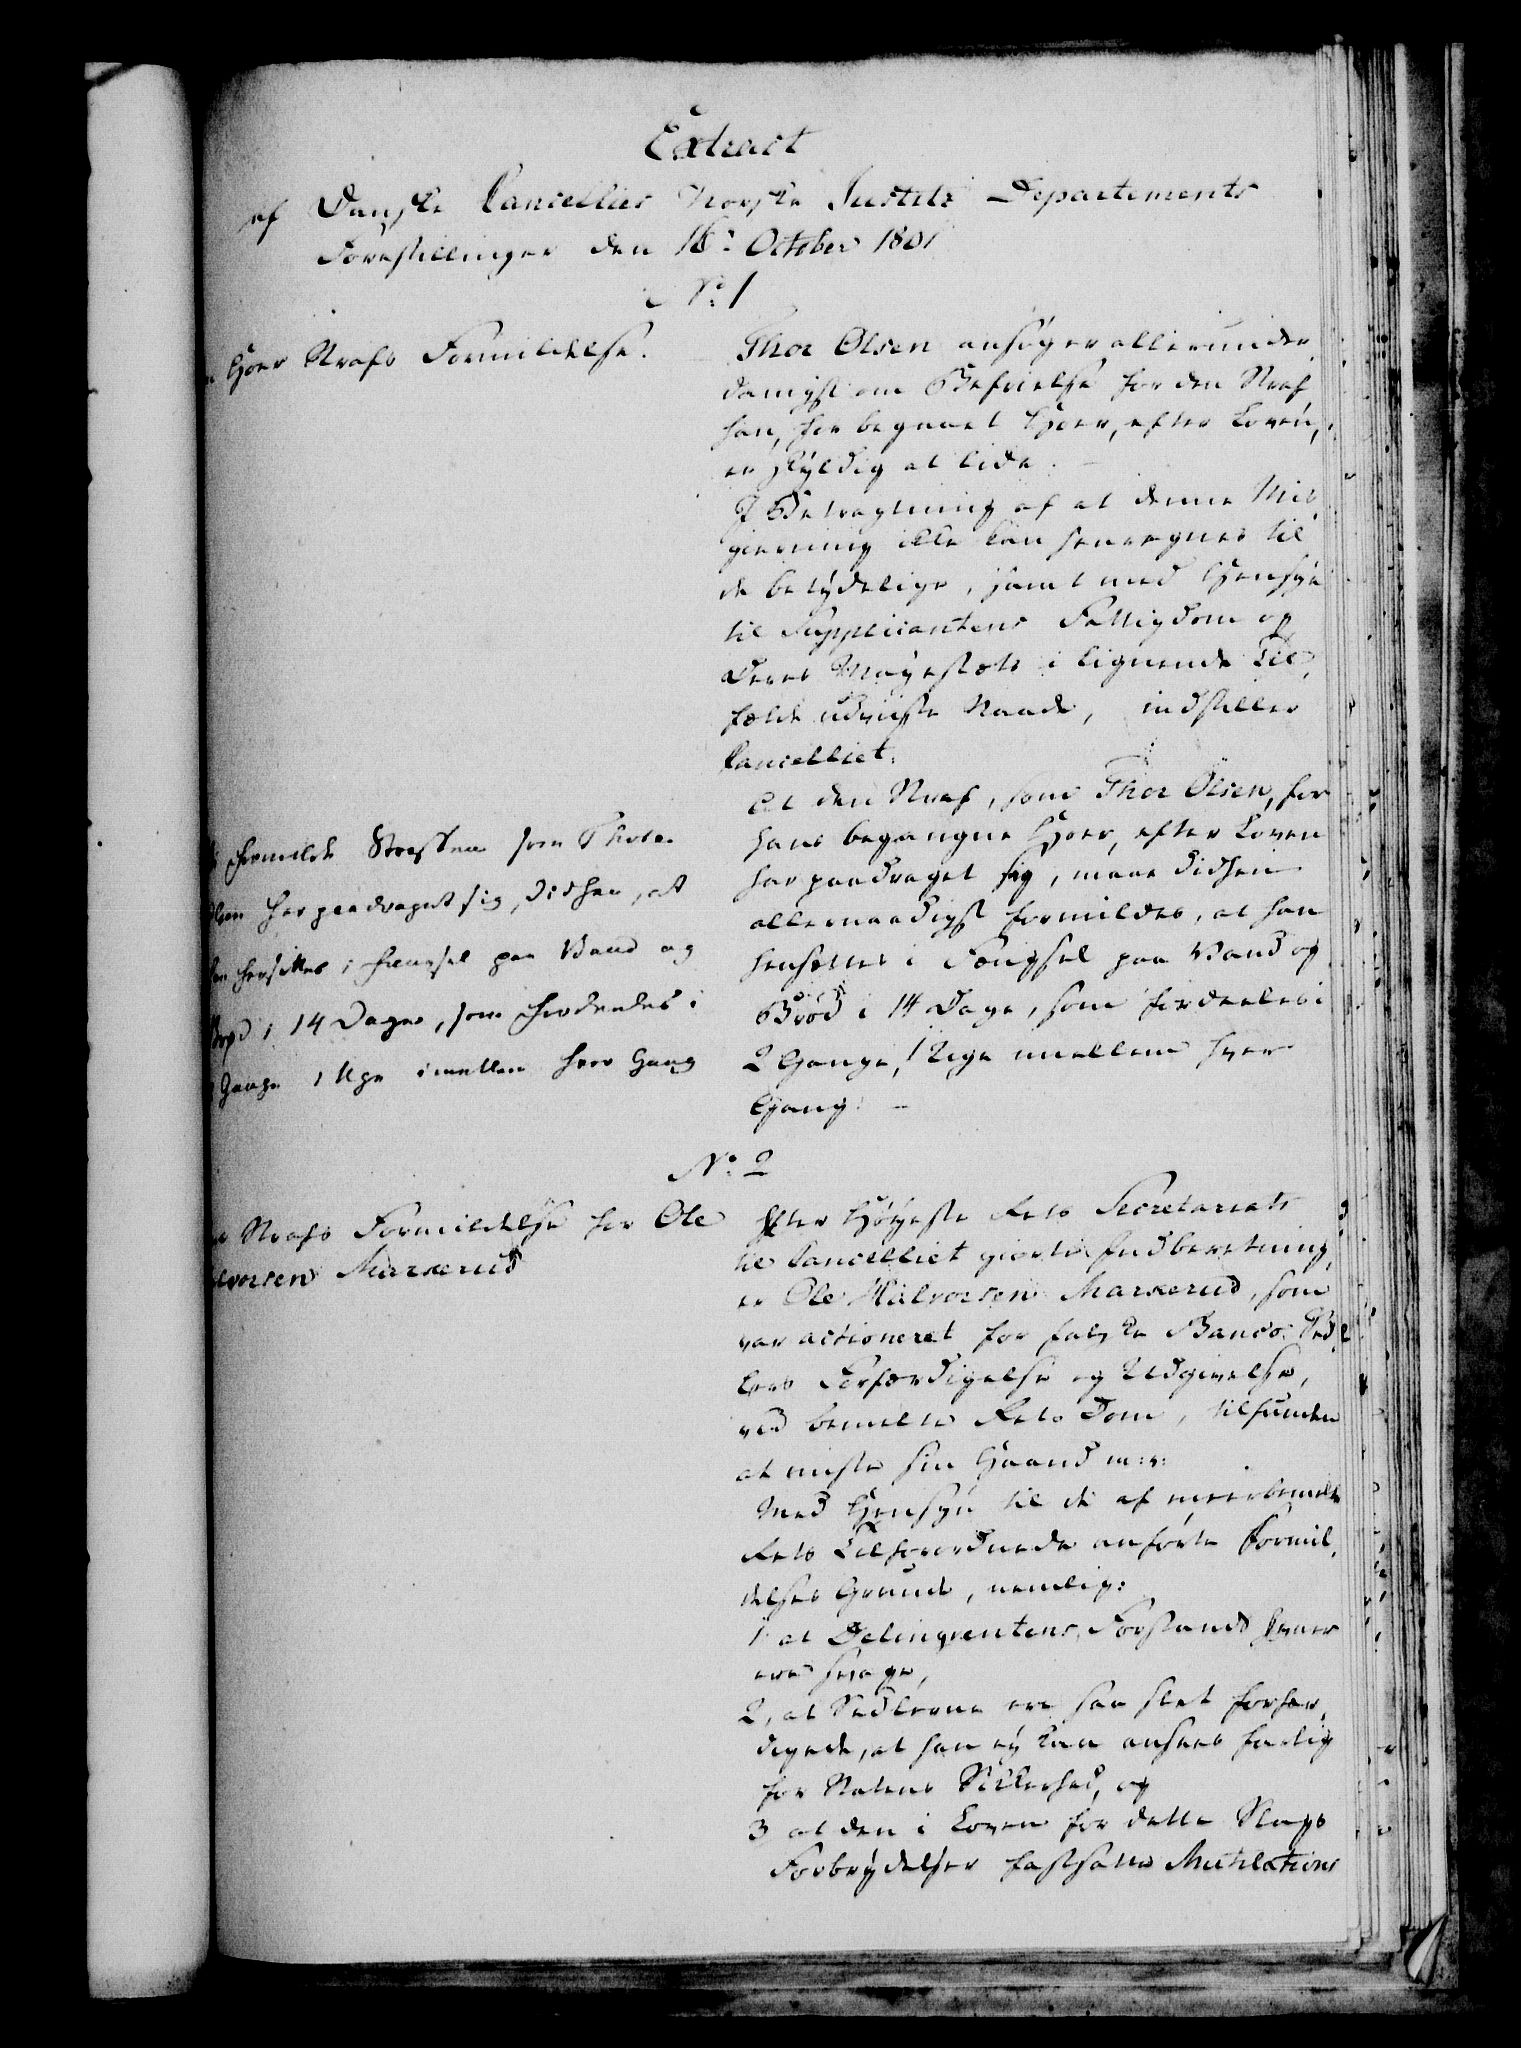 Extract
af Danske Cancellies Norske Justits Departements
Forestillinger den 16de October 1801
No: 1
Hoer Strafs Formildelse.
Thor Olsen ansøger allerunder,
danigst om Befrielse for den Straf
han, for begaaet Hoer, efter Loven,
er skyldig at lide. —
I Betragtning af at denne Mis,
gierning ikke kan henregnes til
de betydelige, samt med Hensyn
til Supplicantens Fattigdom og
Deres Majestæts i lignende Til,
fælde udviiste Naade, indstiller
Cancelliet:
At den Straf, som Thor Olsen, for
hans begangne Hoer, efter Loven
har paadraget sig, maae didhen
allernaadigst formildes, at han
hensættes i Fængsel paa Vand og
Brød i 14 Dage, som fordeeles i
2 Gange, 1 Uge imellem hver
Gang. —
formilde Straffen som Thor
Olsen har paadraget sig, didhen, at
han hensættes i Fængsel paa Vand og
Brød i 14 Dage, som fordeeles i
Gange 1 Uge imellem hver Gang
No: 2
Strafs Formildelse for Ole
Halvorsen Markerud
Efter Høyeste Rets Secretariats
til Cancelliet giorte Indberetning,
er Ole Halvorsen Markerud, som
var actioneret for falske Banco Sed,
lers Forfærdigelse og Udgivelse,
ved bemelte Rets Dom, tilfunden
at miste sin Haand m: v:
Med Hensyn til de af meerbemelte
Rets Tilforordnede anførte Formil,
delses Grunde, nemlig:
1 at Delinqventens Forstands Evner
ere svage,
2, at Sedlerne ere saa slet forfær,
digede, at han ej kan ansees farlig
for Statens Sikkerhed, og
3 at den i Loven for dette Slags
Forbrydelser fastsatte Mutilations